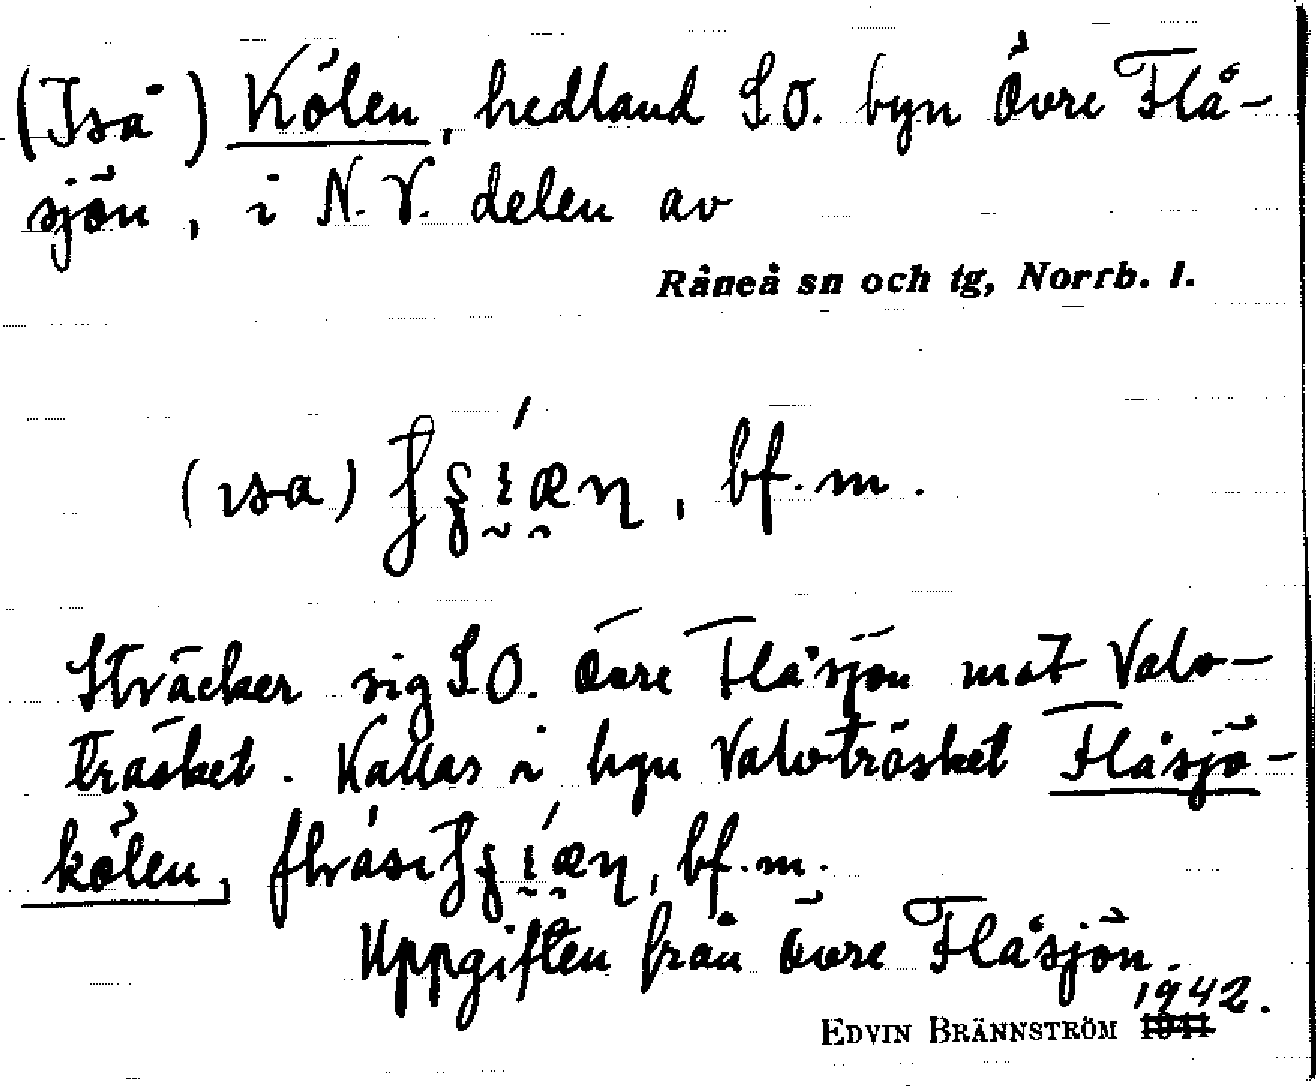 (Isa) Kölen, hedland S.O. byn Övre Flå-
sjön, i N.V. delen av
Råneå sn och tg, Norrb. l.
(ısa) , bf. m.
Sträcker sig S.O. Övre Flåsjön mot Valv-
träsket. Kallas i byn Valvträsket Flåsjö-
kölen, bf. m.
Uppgiften från Övre Flåsjön.
1942.
EDVIN BRÄNNSTRÖM 1941